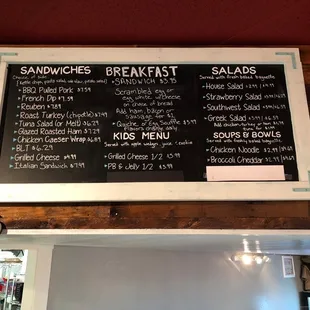 SANDWICHES
Choice of side
BBQ Pulled Pork $7.59
French Dip $7.59
Reuben $7.89
Roast Turkey (chipotle) $7.99
Tuna Salad (or Melt) $6.29
Glazed Roasted Ham $7.29
Chicken Caesar Wrap $6.89
BLT $6.29
Grilled Cheese $4.99
Italian Sandwich $7.59
BREAKFAST
SANDWICH $3.95
Scrambled egg or
egg white w/ cheese
on choice of bread
Add ham, bacon or
sausage for $1
Quiche or Egg Souffle $3.95
flavors change daily
KIDS MENU
Served with apple wedges, juice & cookie
Grilled Cheese 1/2 $3.95
PB & Jelly 1/2 $3.99
SALADS
Served with fresh baked baguette
House Salad
Strawberry Salad
Southwest Salad
Greek Salad
Add chicken, turkey or ham
SOUPS & BOWLS
Served with fresh baked baguette
Chicken Noodle $2.99/$4.99
Broccoli Cheddar